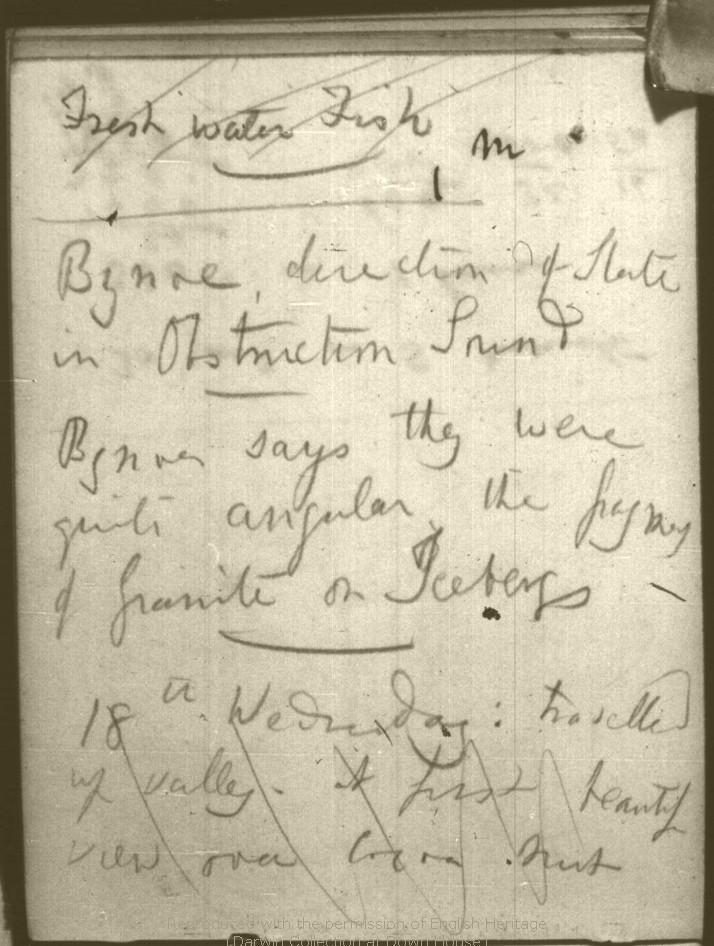 Fresh water Fish
m
Bynoe, direction of Slate
in Obstruction Sound
Bynoe says they were
quite angular, the
of Granite on Icebergs
18th Wednesday: travelled
up valley. at first
view over cocoa nut
Reproduced with the permission of English Heritage
(Darwin Collection at Down House)